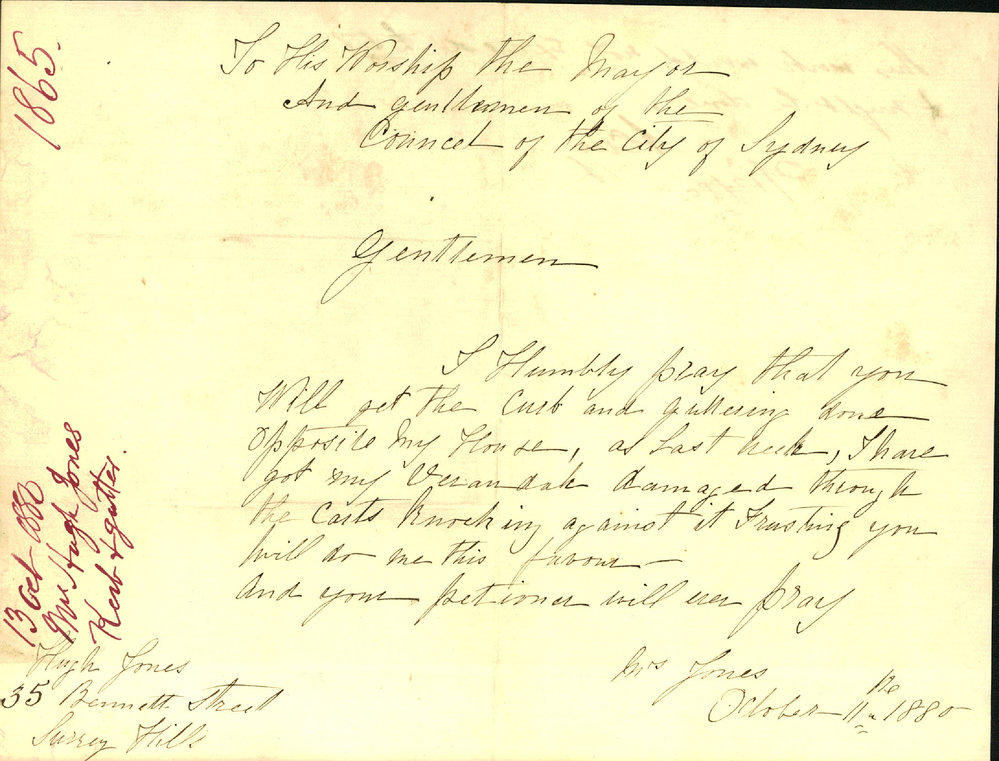 1865.
To His Worship the Mayor
And gentlemen of the
Councel of the City of Sydney
Gentlemen
I Humbly pray that you
Will get the Curb and guttering done
Opposite My House, as Last week, I have
got my Verandah Damaged through
the Carts Knocking against it Trusting you
Will do me this favour —
And your petioner will ever pray
Mrs Jones
October 11th 1880
Hugh Jones
35 Bennett Street
Surrey Hills
13 Oct 1880
Mrs Hugh Jones
Kerb & gutter.